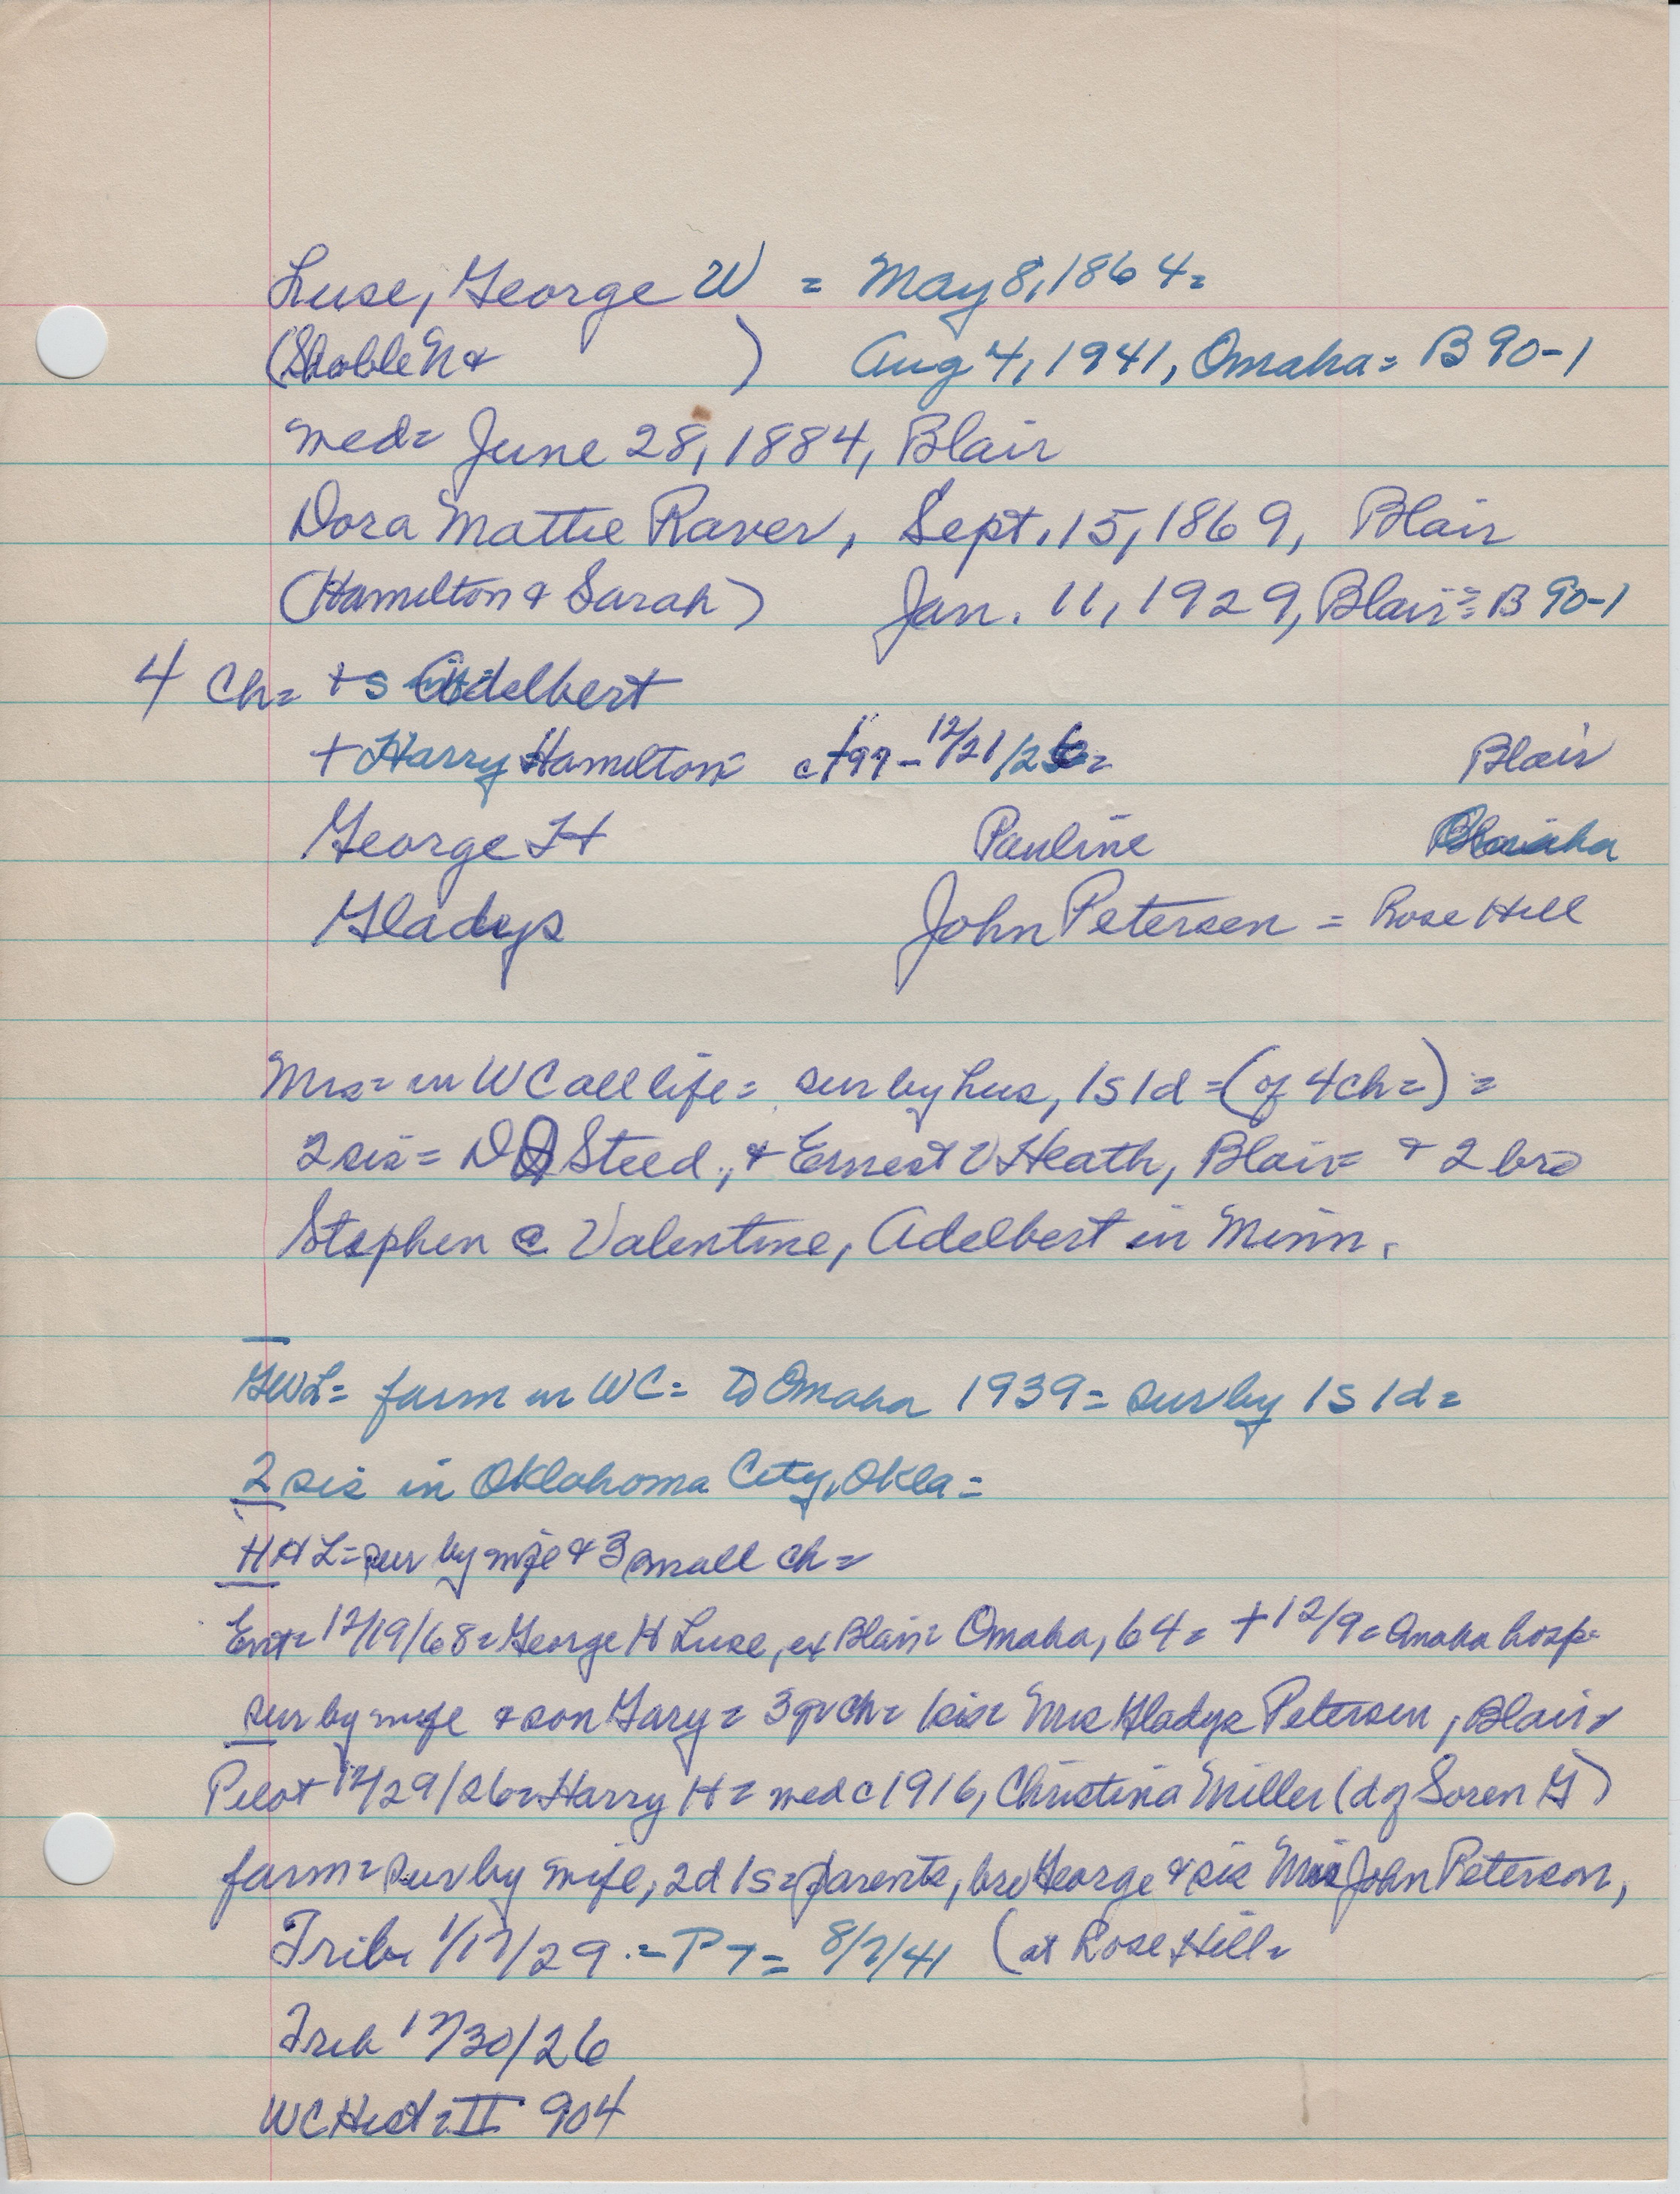 Luse, George W = May 8, 1864=
(Shoble N & ) Aug 4, 1941, Omaha= B 90-1
med= June 28, 1884, Blair
Dora Mattie Raver, Sept. 15, 1869, Blair
(Hamilton & Sarah) Jan. 11, 1929, Blair= B 90-1
4 Ch= +s Adelbert
+ Harry Hamilton c 12/21/26= Blair
George H Pauline Omaha
Gladys John Petersen = Rose Hill
Mrs= in WC all life= sur by hus, 1s 1d =(of 4 ch=) =
2 sis= D Steed., & Ernest V Heath, Blair= + 2 bro
Stephen @ Valentine, Adelbert in Minn.
GWL= farm in WC= to Omaha 1939= sur by 1s 1d=
2 sis in Oklahoma City, Okla=
HHL= sur by wife & 3 small ch=
Ent= 12/19/68= George H Luse, ex Blair= Omaha, 64= +12/9= Omaha hosp=
sur by wife & son Gary= 3 gr ch= 1 sis= Mrs Gladys Petersen, Blair=
Pilot 12/29/26= Harry H= med c 1916, Christina Miller (d of Soren G)
farm= sur by wife, 2d 1s= parents, bro George & sis Mrs John Peterson,
Trib 1/17/29 .= P T= 8/7/41 (at Rose Hill=
Trib 12/30/26
WC Hist= II 904